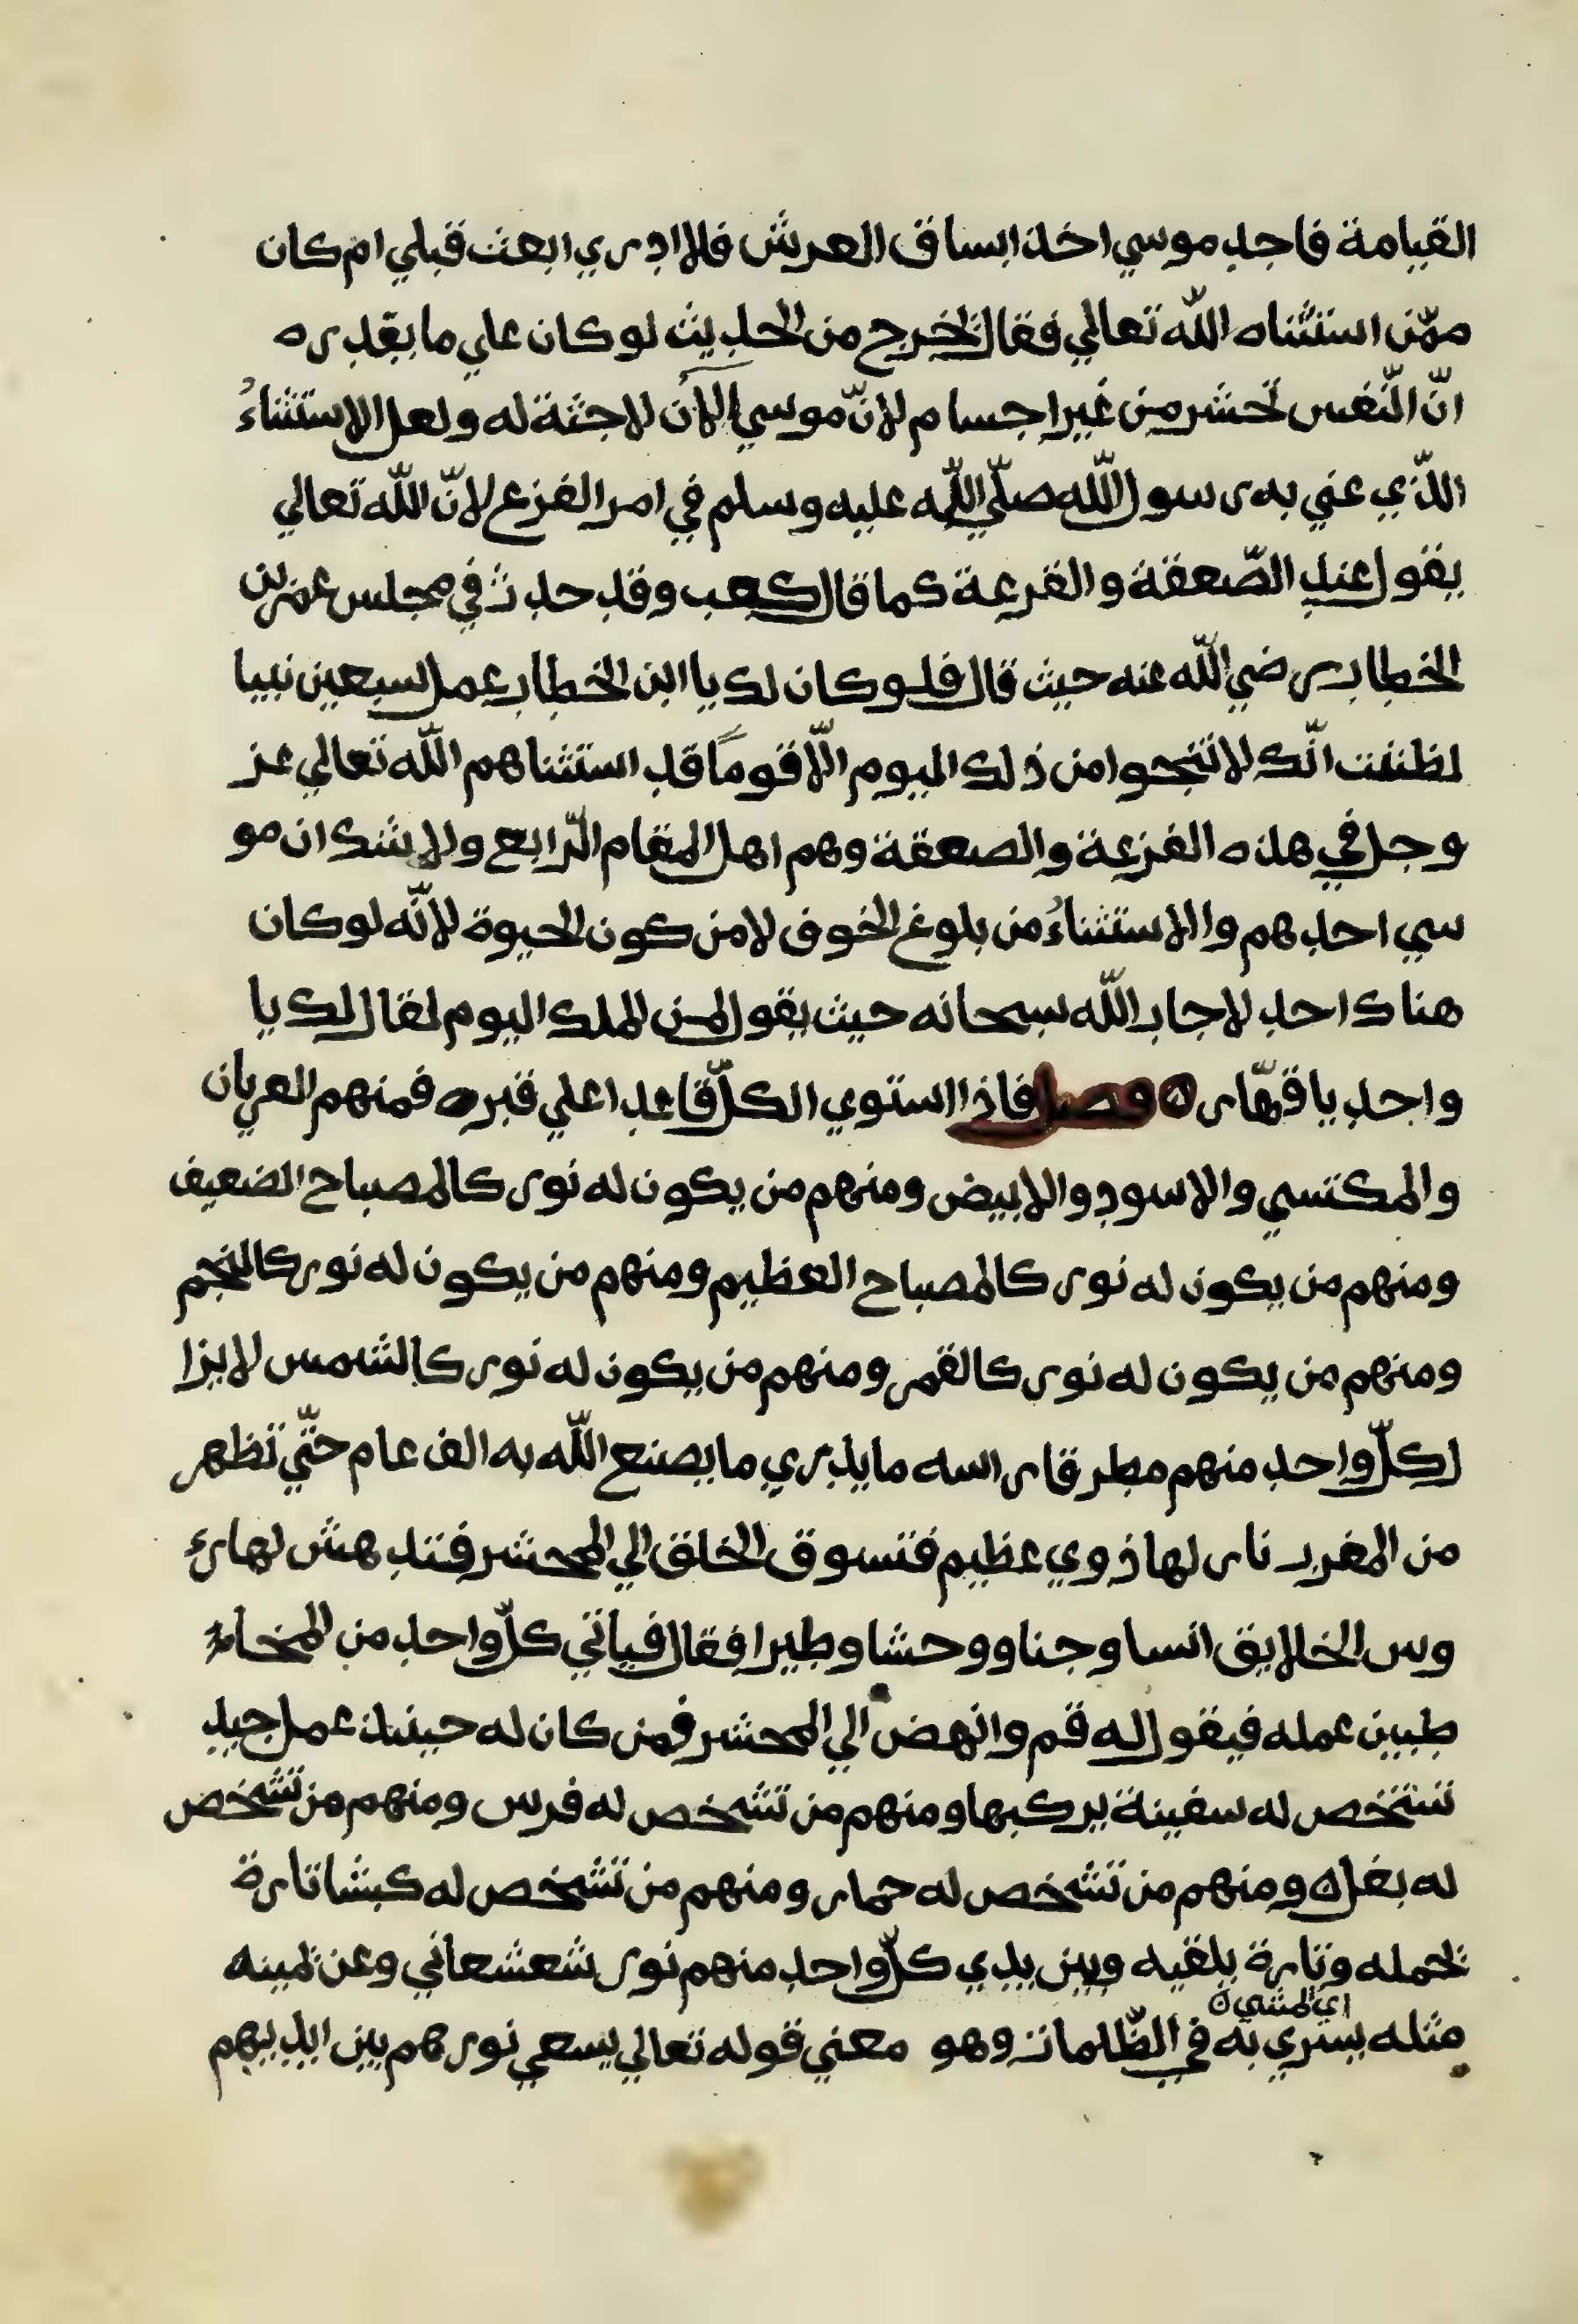 القيامة فاجد موسي اخذ ابساق العرش فلا ادري ابعث قبلي ام كان
ممّن استثناه اللّه تعالي فقال يخرج من الحديث لو كان علي ما يقدره
انّ النّفس تحشر من غير اجسام لانّ موسي الان لا جثة له ولعل الاستثناءُ
الذّي عني به رسول اللّه صلّي اللّه عليه وسلم في امر الفزع لانّ اللّه تعالي
يقول عند الصّعقة والقرعة كما قال كعب وقد حدث في مجلس عمر بن
الخطاب رضي اللّه عنه حيث قال فلو كان لك يا ابن الخطاب عمل سبعين نبيا
لظننت انّك لا تنجوا من ذلك اليوم الّا قوماً قد استثناهم اللّه تعالي عز
وجل في هذه الفزعة والصعقة وهم اهل المقام الرّابع ولا شك ان مو
سي احدهم واالاستثناءُ من بلوغ الخوف لا من كون الحيوة لانّه لو كان
هناك احد لاجاب اللّه سبحانه حيث يقول لمن الملك اليوم لقال لك يا
واحد يا قهّار ه فصل فاذا استوي الكلّ قاعدا علي قبره فمنهم العريان
والمكتسي والاسود والابيض ومنهم من يكون له نور كالمصباح الضعيف
ومنهم من يكون له نور كالمصباح العظيم ومنهم من يكون له نور كالنجم
ومنهم من يكون له نور كالقمر ومنهم من يكون له نور كالشمس لا يزا
ل كلّ واحد منهم مطرقا راسه ما يدري ما يصنع اللّه به الف عام حتّي تظهر
من المغرب نار لها ذوي عظيم فتسوق الخلق الي المحشر فتدهش لها رءُ
وس الخلايق انسا وجنا ووحشا وطيرا فقال فياتي كلّ واحد من المخا
طبين عمله فيقول له قم وانهض الي المحشر فمن كان له حينئذ عمل جيد
تشخص له سفينة يركبها ومنهم من تشخص له فرس ومنهم من تشخص
له بغل ه ومنهم من تشخص له حمار ومنهم من تشخص له كبشا تارة
تحمله وتارة يلقيه وبين يدي كلّ واحد منهم نور شعشعاني وعن يمينه
اي المشي ه
مثله يسري به في الظّلمات وهو معني قوله تعالي يسعي نورهم بين ايديهم